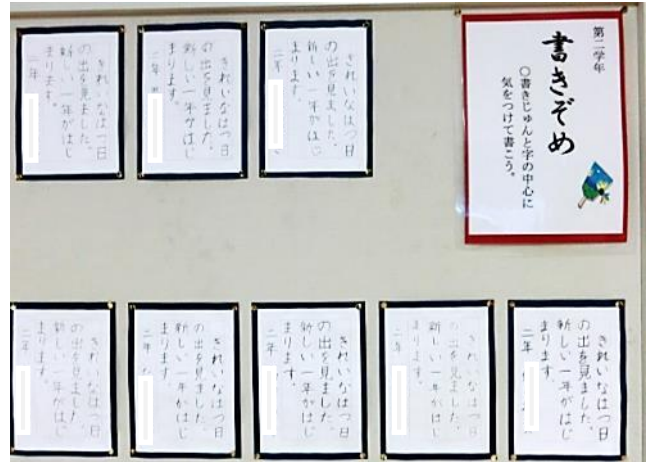 第二学年
書きぞめ
○書きじゅんと字の中心に
気をつけて書こう。
きれいなはつ日
の出を見ました。
新しい一年がはじ
まります。
二年
きれいなはつ日
の出を見ました。
新しい一年がはじ
まります。
二年
きれいなはつ日
の出を見ました。
新しい一年がはじ
まります。
二年
きれいなはつ日
の出を見ました。
新しい一年がはじ
まります。
二年
きれいなはつ日
の出を見ました。
新しい一年がはじ
まります。
二年
きれいなはつ日
の出を見ました。
新しい一年がはじ
まります。
二年
きれいなはつ日
の出を見ました。
新しい一年がはじ
まります。
二年
きれいなはつ日
の出を見ました。
新しい一年がはじ
まります。
二年